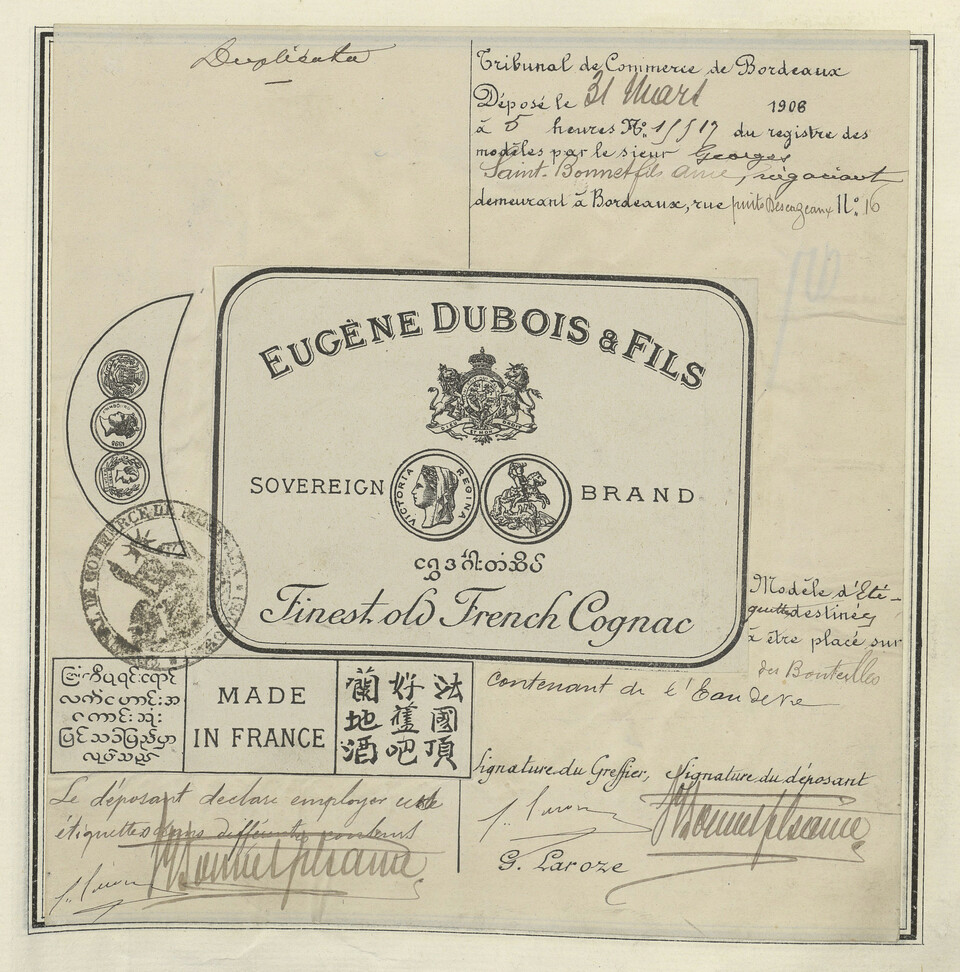 Duplicata
Tribunal de Commerce de Bordeaux
Déposé le 31 Mars 1906
à 5 heures No. 15517 du registre des
modèles par le sieur Georges
Saint-Bonnet fils ainé, négociant
demeurant à Bordeaux, rue puits Descazeaux No. 16
EUGÈNE DUBOIS & FILS
DIEU ET MON DROIT
SOVEREIGN
VICTORIA REGINA
BRAND
ရွှေဒင်္ဂါးတံဆိပ်
Finest old French Cognac
Modèle d'Eti-
quettes destinées
à être placé sur
des Bouteilles
contenant de l'Eau de vie
MADE
IN FRANCE
法國頂
好舊吧
蘭地酒
Signature du Greffier, Signature du déposant
G. Laroze
Le déposant déclare employer cette
étiquette dans différentes couleurs